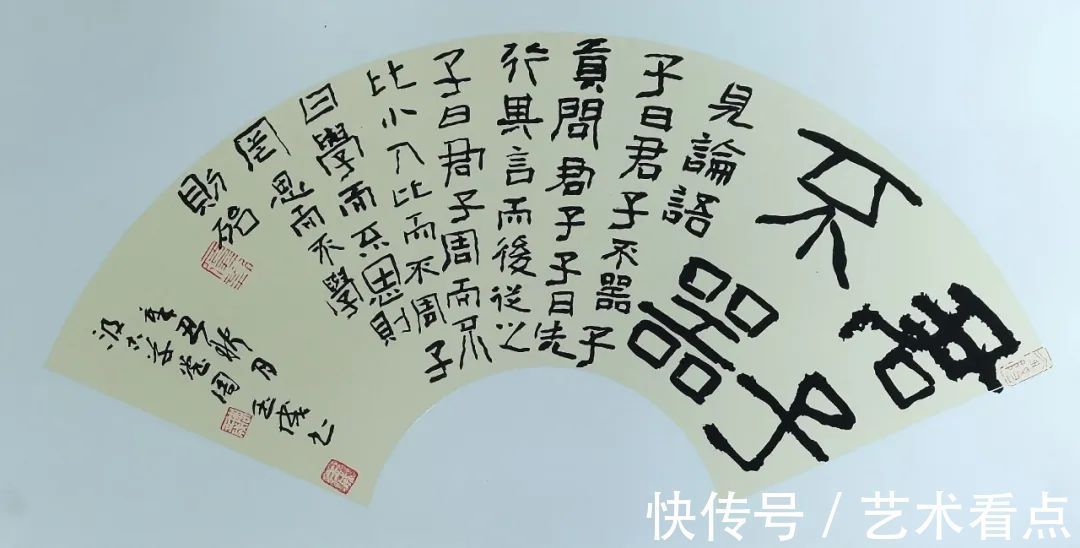 君子
不器
見論語
子曰君子不器子
貢問君子子曰先
行其言而後從之
子曰君子周而不
比小人比而不周子
曰學而不思則
罔思而不學
則殆
辛丑秋月
周玉书
快传号 / 艺术看点